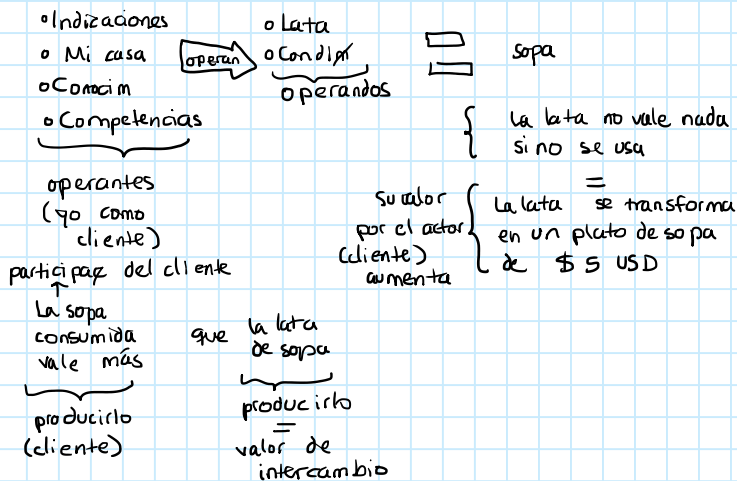 • Indicaciones
• Mi casa
• Conocim
• Competencias
operantes
(yo como
cliente)
operan
• Lata
• Condim
operandos
=
sopa
La lata no vale nada
si no se usa
=
Su valor
por el actor
(cliente)
aumenta
La lata se transforma
en un plato de sopa
de $5 USD
participaç del cliente
↑
La sopa
consumida
vale más
producirlo
(cliente)
que
la lata
de sopa
producirlo
=
valor de
intercambio